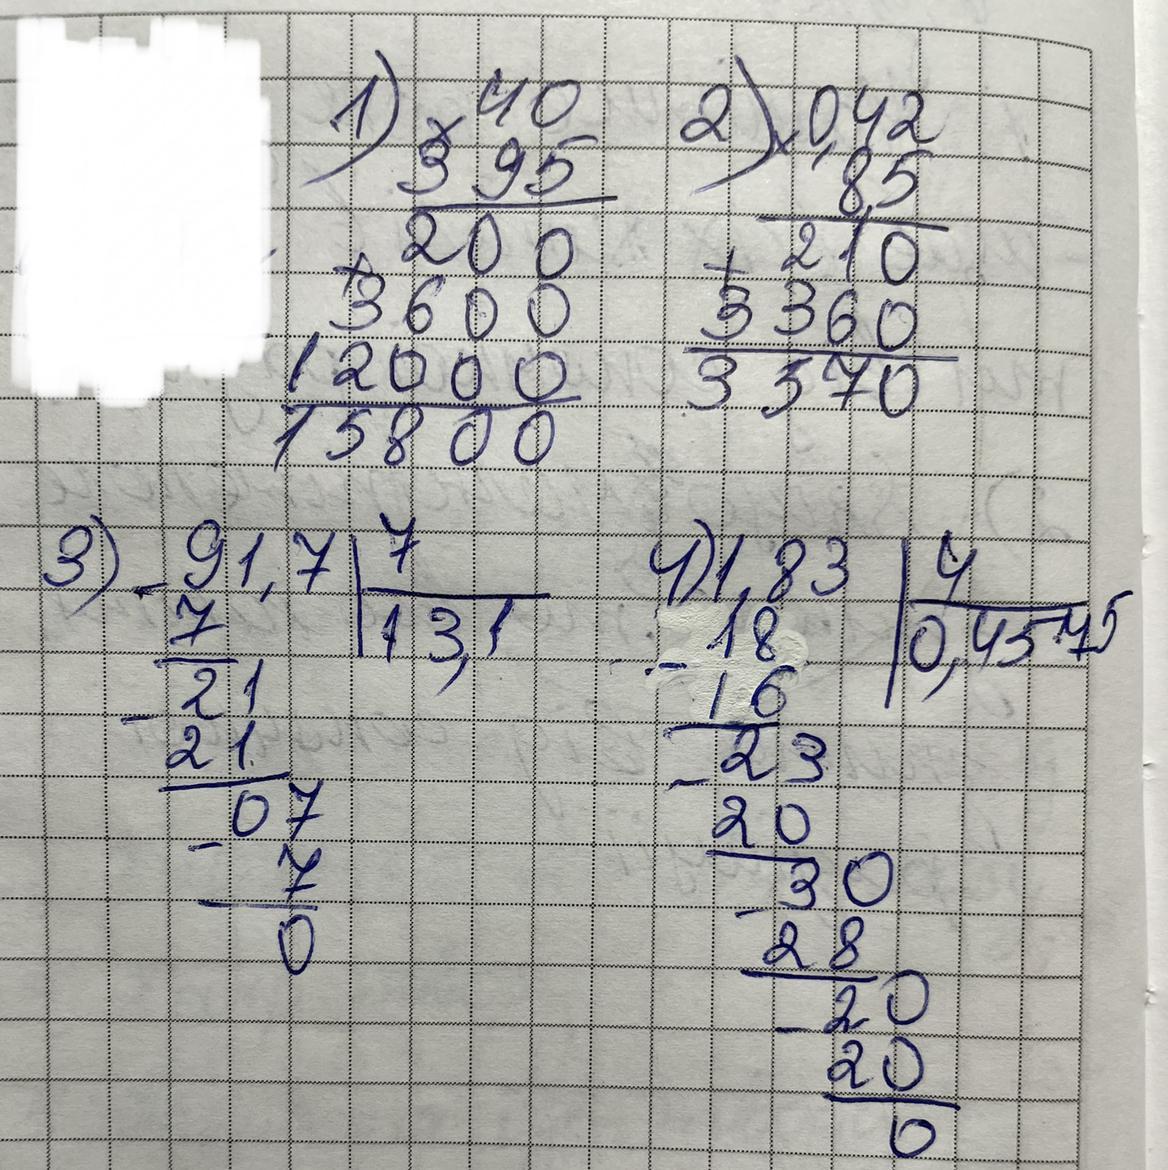 1) × 40
395
200
+ 3600
12000
15800
2) × 0,42
8,5
210
+ 3360
3570
3) - 91,7 | 7
7 | 13,1
21
- 21
07
- 7
0
4) 1,83 | 4
- 18 | 0,4575
16
- 23
20
- 30
28
- 20
20
0